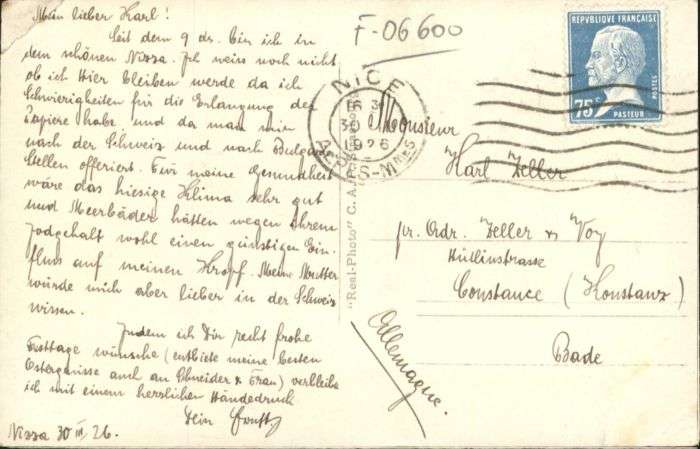 Mein lieber Karl!
Seit dem 9 ds. bin ich in
dem schönen Nizza. Ich weiss noch nicht
ob ich hier bleiben werde da ich
Schwierigkeiten für die Erlangung der
Papiere habe und da man mir
nach der Schweiz und nach Bulgarien
Stellen offeriert. Für meine Gesundheit
wäre das hiesige Klima sehr gut
und Meerbäder hätten wegen ihrem
Jodgehalt wohl einen günstigen Ein-
fluss auf meinen Kropf. Meine Mutter
würde mich aber lieber in der Schweiz
wissen.
Indem ich Dir recht frohe
Festtage wünsche (entbiete meine besten
Ostergrüsse auch an Schneider & Frau) verbleibe
ich mit einem herzlichen Händedruck
Dein
Nizza 30 III 26.
F-06600
NICE
30
1926
REPUBLIQUE FRANÇAISE
POSTES
75c
PASTEUR
"Real-Photo" C. A. P.
Monsieur
Karl Zeller
pr. Adr. Zeller & Voy
Hüllinstrasse
Constance (Konstanz)
Bade
Allemagne.